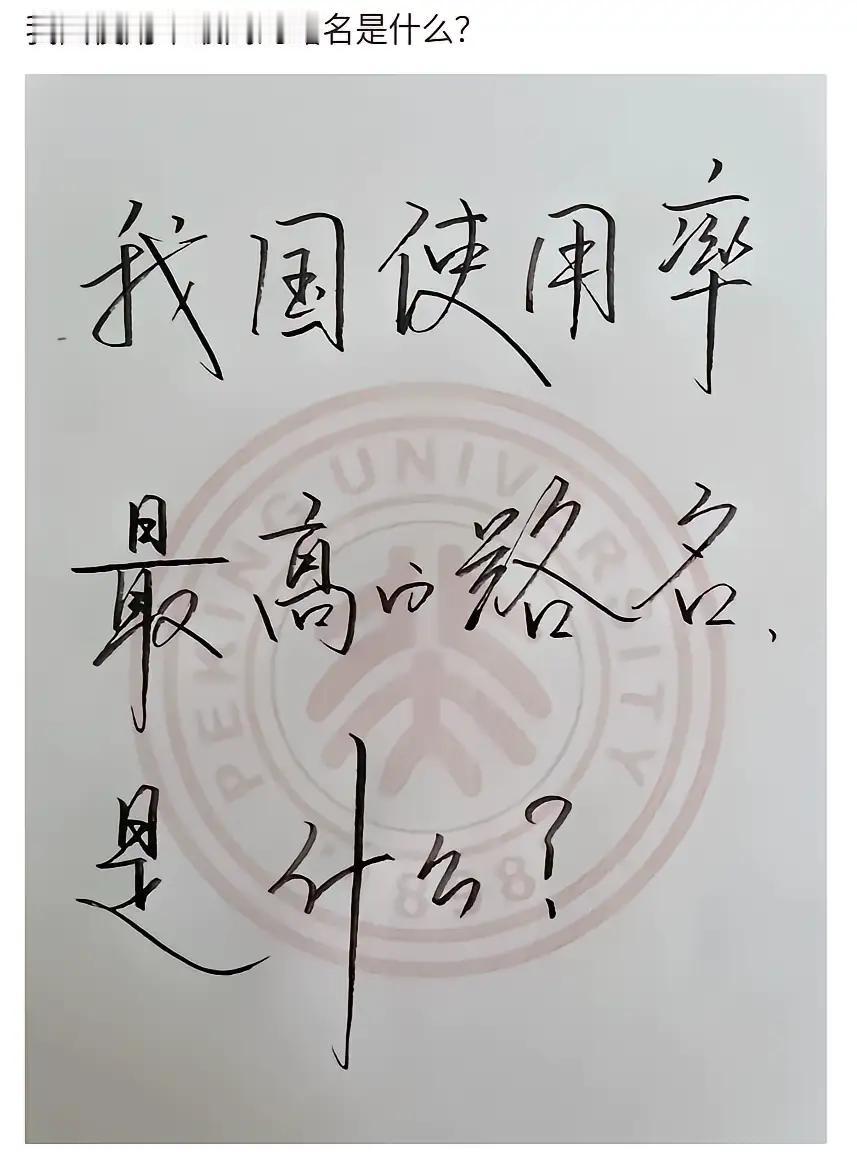 名是什么？
我国使用率
最高的路名，
是什么？
PEKING UNIVERSITY
1898